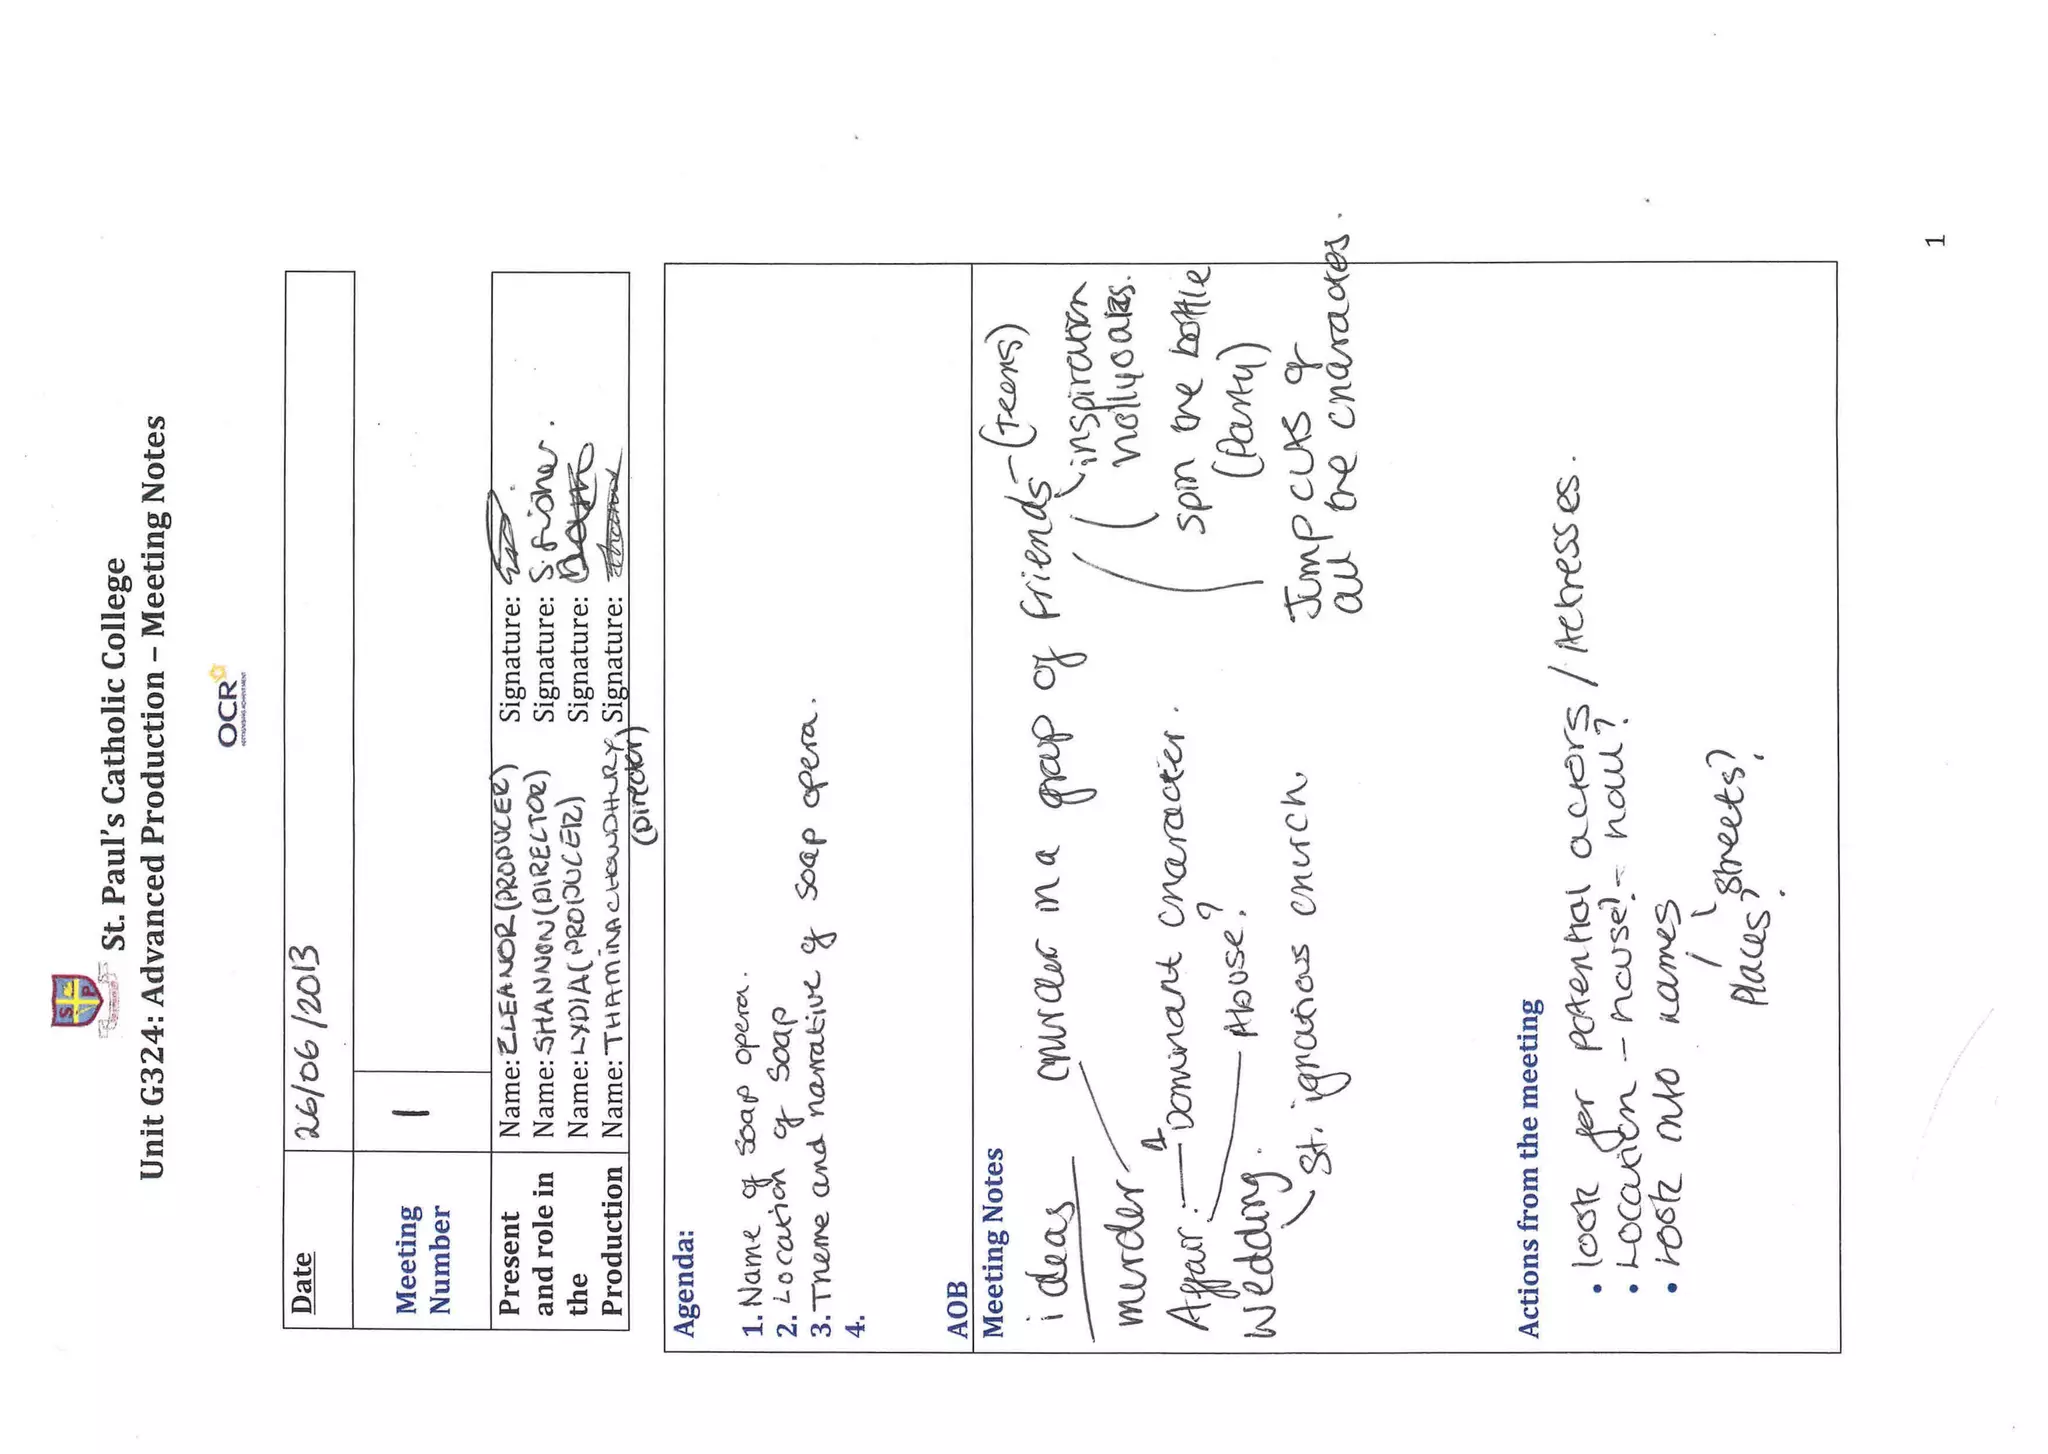 St. Paul's Catholic College
Unit G324: Advanced Production – Meeting Notes
OCR
Date 26/06/2013
Meeting Number 1
Present and role in the Production
Name: ELEANOR (PRODUCER) Signature:
Name: SHANNON (DIRECTOR) Signature: S. Fisher.
Name: LYDIA (PRODUCER) Signature:
Name: THAMINA CHOWDHURY (Director) Signature:
Agenda:
1. Name of soap opera.
2. Location of soap
3. Theme and narrative of soap opera.
4.
AOB
Meeting Notes
ideas
murder in a group of friends - (Teens)
inspiration
hollyoaks.
murder
spin the bottle
(Party)
Affair: Dominant character.
Abuse?
Jump cuts of
all the characters.
Wedding.
St. ignatious church
Actions from the meeting
• look for potential actors / Actresses.
• Location - house? - hall?
• look into names
Places? Streets?
1